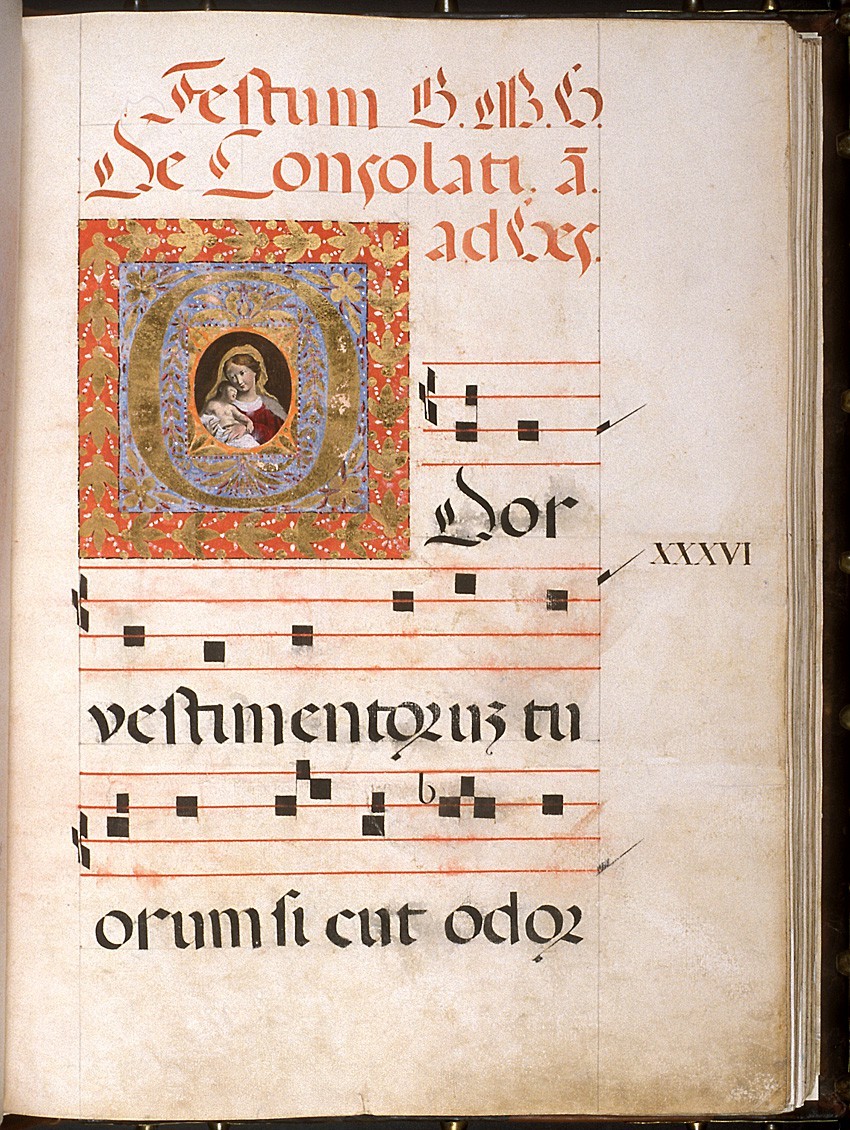 Festum B.
De Consolati. ā.
ad
O
Dor
XXXVI
vestimentoruz tu
orum si cut odor